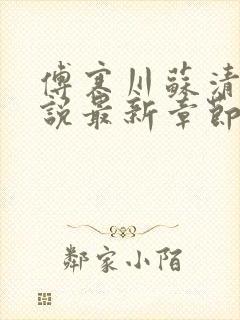 傅寒川蘇清
說最新章節
鄰家小陌